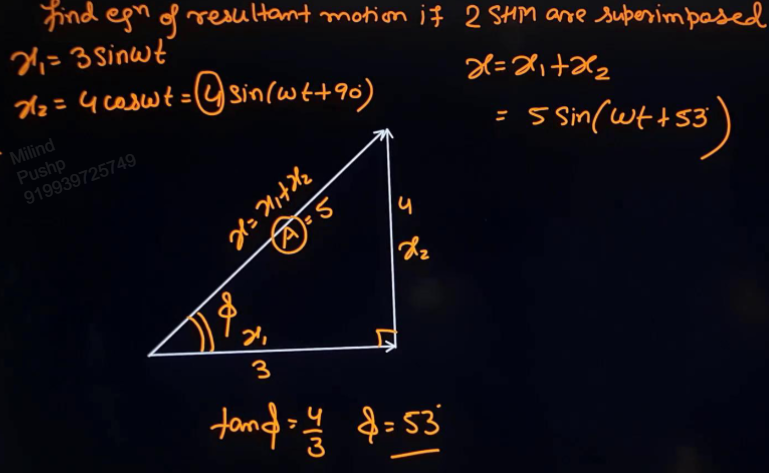 find eqⁿ of resultant motion if 2 SHM are superimposed
x₁ = 3 sinωt
x₂ = 4 cosωt = 4 sin(ωt+90°)
x = x₁+x₂
= 5 sin(ωt+53°)
Milind
Pushp
919939725749
x = x₁+x₂
A = 5
4
x₂
ϕ
x₁
3
tanϕ = 4/3 ϕ = 53°